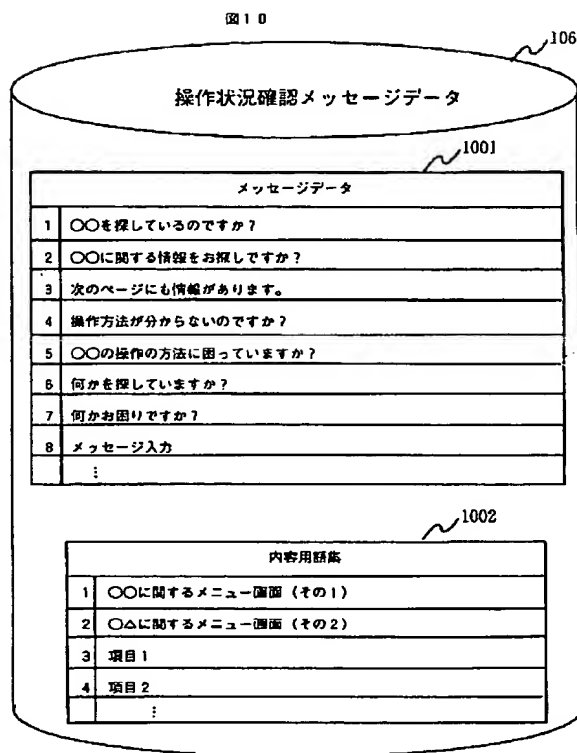 図10
106
操作状況確認メッセージデータ
1001
メッセージデータ
1 〇〇を探しているのですか?
2 〇〇に関する情報をお探しですか?
3 次のページにも情報があります。
4 操作方法が分からないのですか?
5 〇〇の操作の方法に困っていますか?
6 何かを探していますか?
7 何かお困りですか?
8 メッセージ入力
⋮
1002
内容用語集
1 〇〇に関するメニュー画面(その1)
2 〇△に関するメニュー画面(その2)
3 項目1
4 項目2
⋮